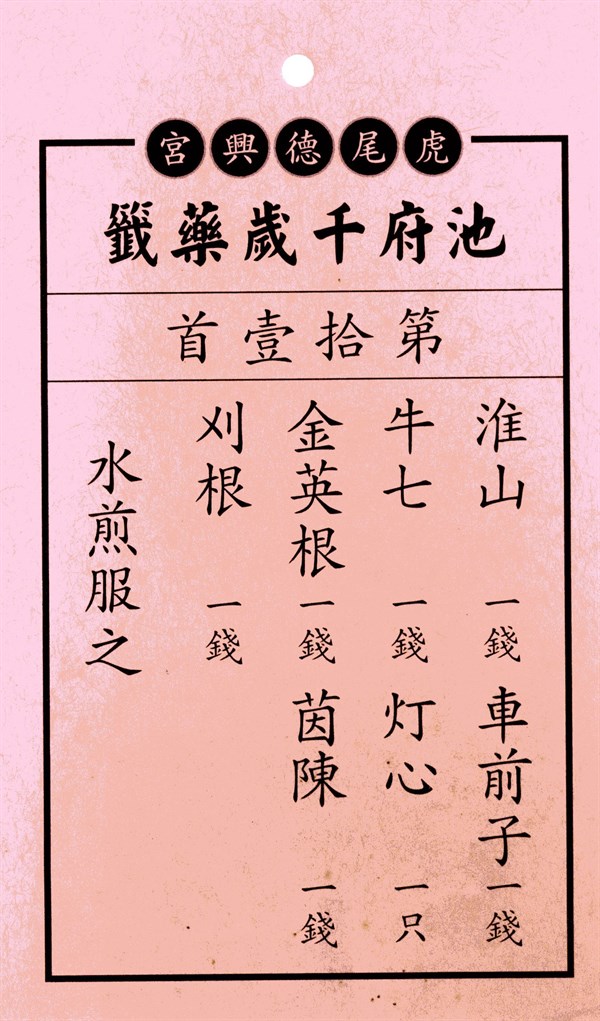 虎尾德興宮
池府千歲藥籤
第拾壹首
淮山 一錢 車前子 一錢
牛七 一錢 灯心 一只
金英根 一錢 茵陳 一錢
刈根 一錢
水煎服之